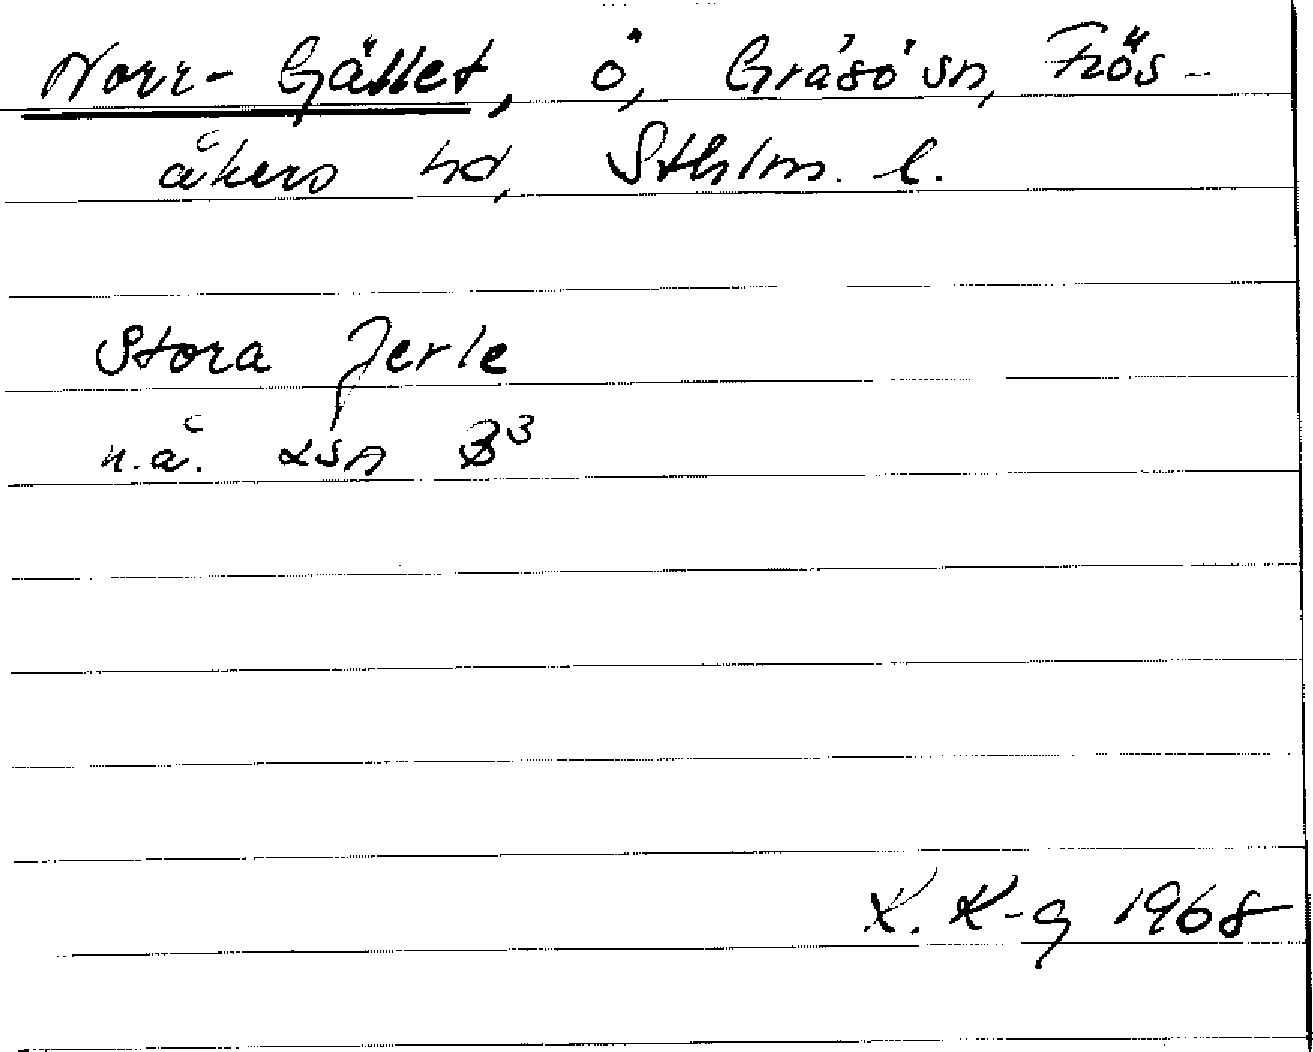 Norr-Gället, ö, Gräsö sn, Frös-
åkers hd, Sthlm. l.
Stora Jerle
n.å. LSA B³
K. K-g 1968